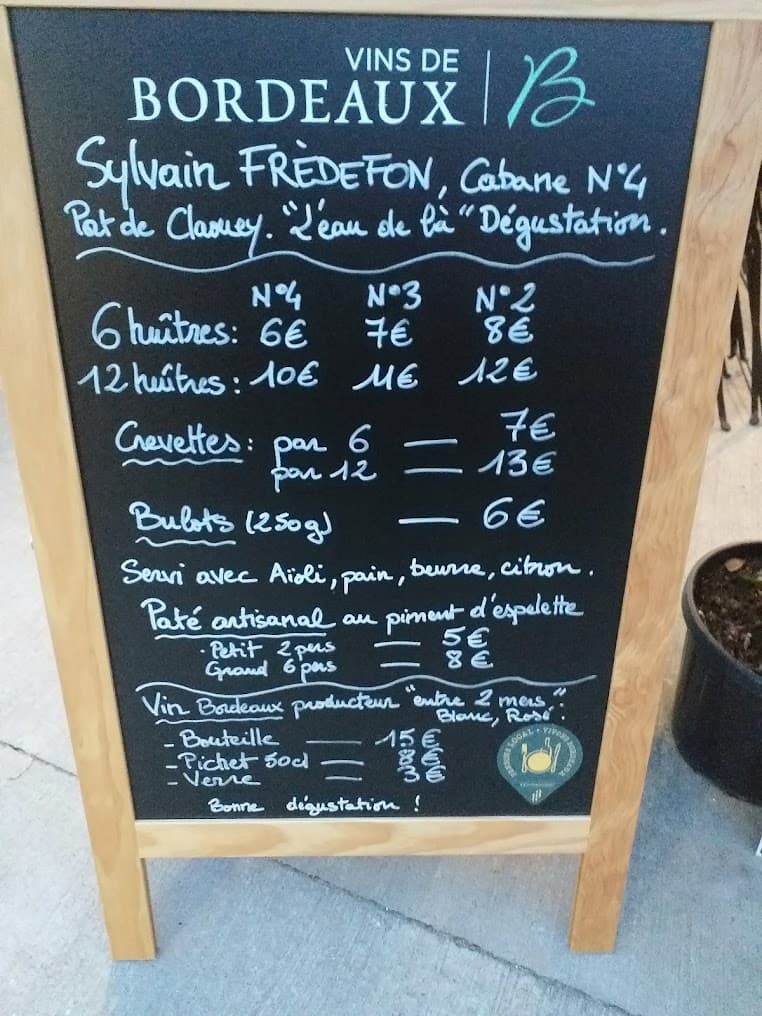 VINS DE
BORDEAUX B
Sylvain FRÈDEFON, Cabane N°4
Port de Claouey. "L'eau de là" Dégustation.
N°4 N°3 N°2
6 huîtres: 6€ 7€ 8€
12 huîtres: 10€ 11€ 12€
Crevettes: par 6 — 7€
par 12 — 13€
Bulots (250g) — 6€
Servi avec Aïoli, pain, beurre, citron.
Paté artisanal au piment d'espelette
· Petit 2 pers — 5€
Grand 6 pers — 8€
Vin Bordeaux producteur "entre 2 mers".
Blanc, Rosé.
- Bouteille — 15€
- Pichet 50cl — 8€
- Verre — 3€
Bonne dégustation !